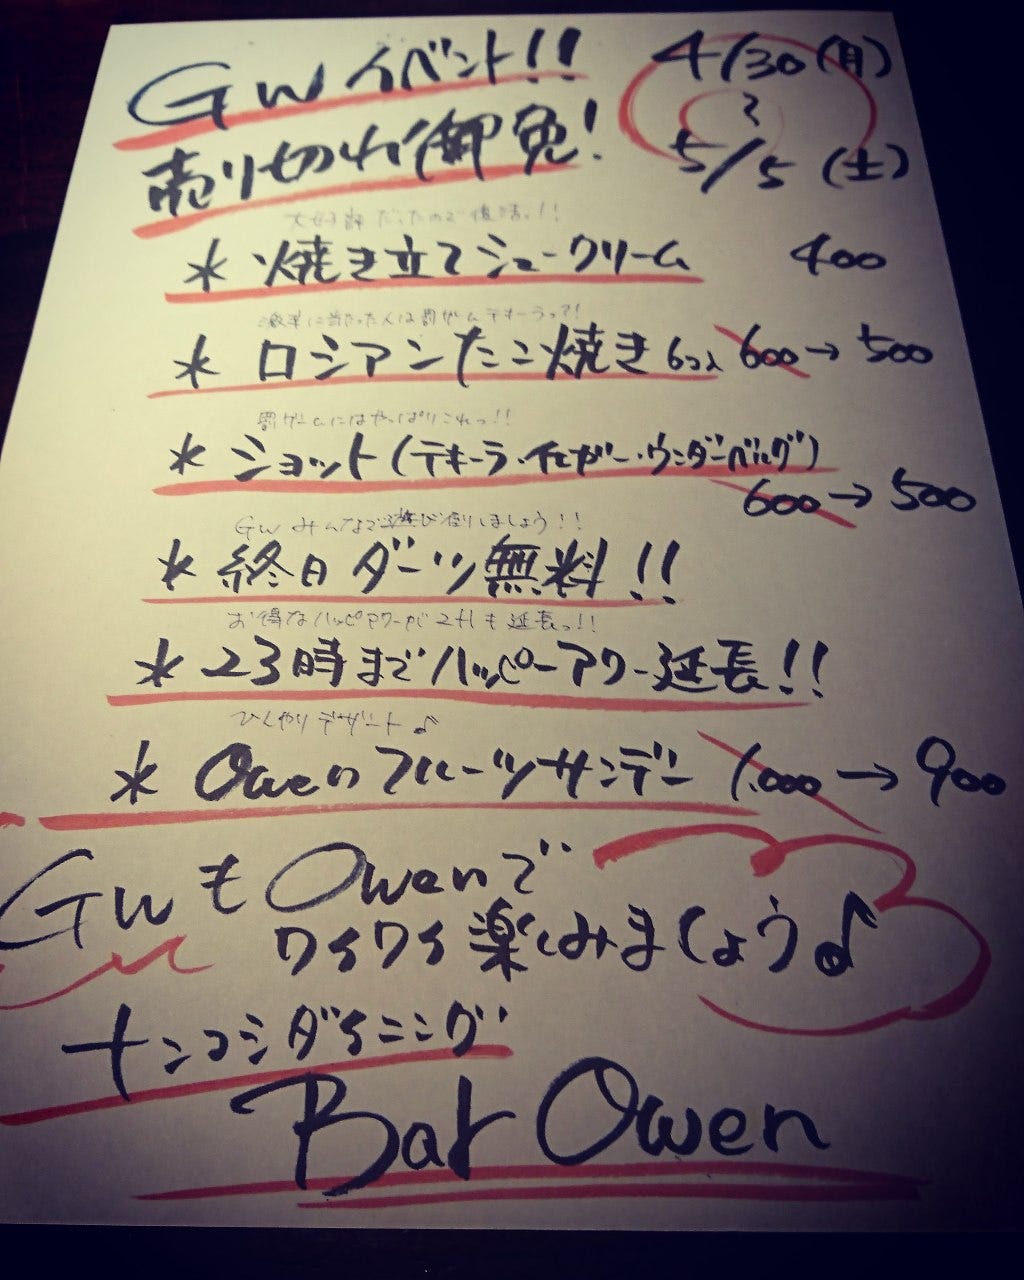 GWイベント!!
4/30(月)
〜
5/5(土)
売り切れ御免!
大好評だったので復活っ!!
* 焼き立てシュークリーム 400
激辛に当たった人は罰ゲームテキーラっ?!
* ロシアンたこ焼き 6コ入 600→500
罰ゲームにはやっぱりこれっ!!
* ショット(テキーラ・イエガー・ウンダーベルグ)
600→500
GWみんなで遊び倒しましょう!!
* 終日ダーツ無料!!
お得なハッピアワーが2Hも延長っ!!
* 23時までハッピーアワー延長!!
ひんやりデザート♪
* Owenフルーツサンデー 1,000→900
GWもOwenで
ワイワイ楽しみましょう♪
ナンコシダイニング
Bar Owen